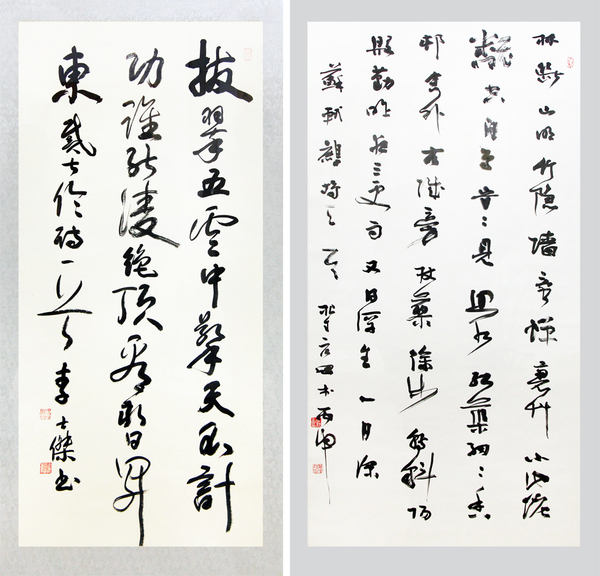 拔翠五雲中擎天不計
功誰能凌絕頂看取日昇
東 戴叔倫詩一首 李士傑書
林斷山明竹隱墻亂蟬衰草小池塘
翻空白鳥時々見照水紅蕖細々香
邨舍外古城旁杖藜徐步轉斜陽
殷勤昨夜三更雨又得浮生一日涼
蘇軾鷓鴣天 丙申